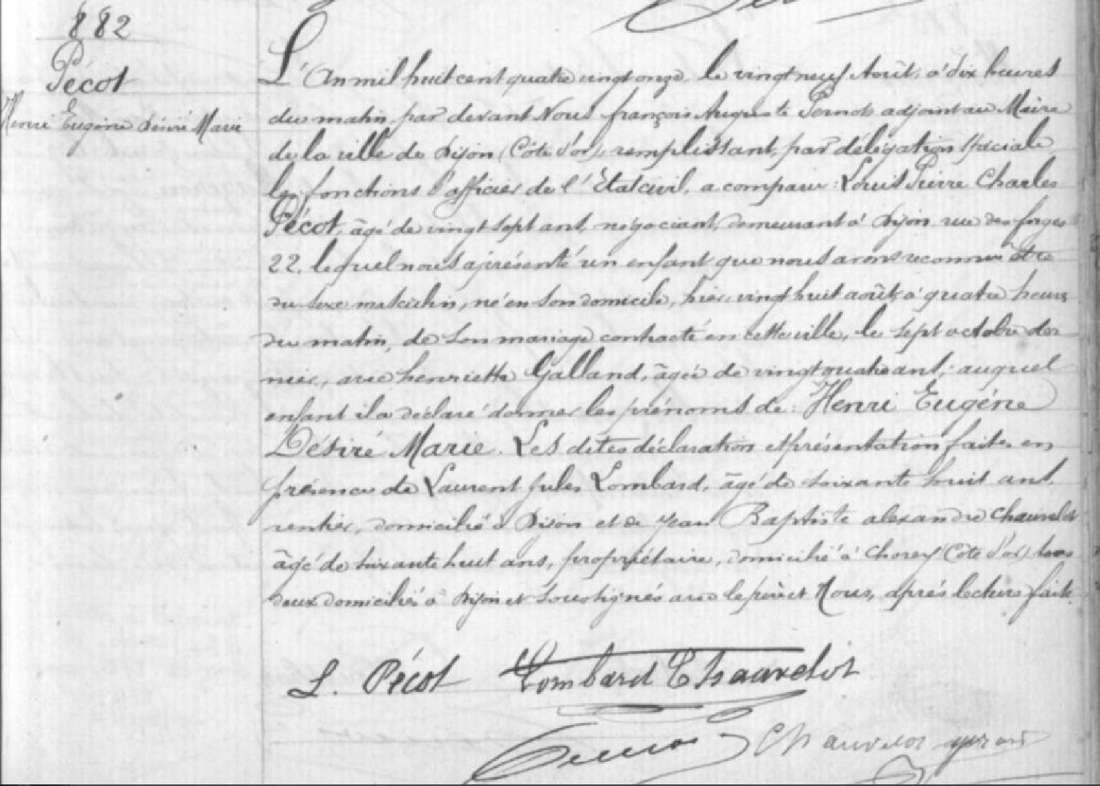 882
Pécot
Henri Eugène Désiré Marie
L'An mil huit cent quatre vingt onze, le vingt neuf Août, à dix heures
du matin, par devant Nous françois Auguste adjoint au Maire
de la ville de Dijon (Côte d'or), remplissant, par délégation spéciale
les fonctions d'officier de l'Etat civil, a comparu : Louis Pierre Charles
Pécot, âgé de vingt sept ans, négociant, demeurant à Dijon rue des forges
22, lequel nous a présenté un enfant que nous avons reconnu être
du sexe masculin, né en son domicile, hier, vingt huit août, à quatre heures
du matin, de son mariage contracté en cette ville, le sept octobre der
nier, avec henriette Galland, âgée de vingt quatre ans, auquel
enfant il a déclaré donner les prénoms de : Henri Eugène
Désiré Marie. Les dites déclaration et présentation faites en
présence de Laurent Jules Lombard, âgé de soixante huit ans,
rentier, domicilié à Dijon et de Jean Baptiste alexandre Chauvelot
âgé de soixante huit ans, propriétaire, domicilié à Chorey (Côte d'or) tous
deux domiciliés à Dijon et soussignés avec le père et Nous, après lecture faite.
L. Pécot Lombard Chauvelot
Chauvelot